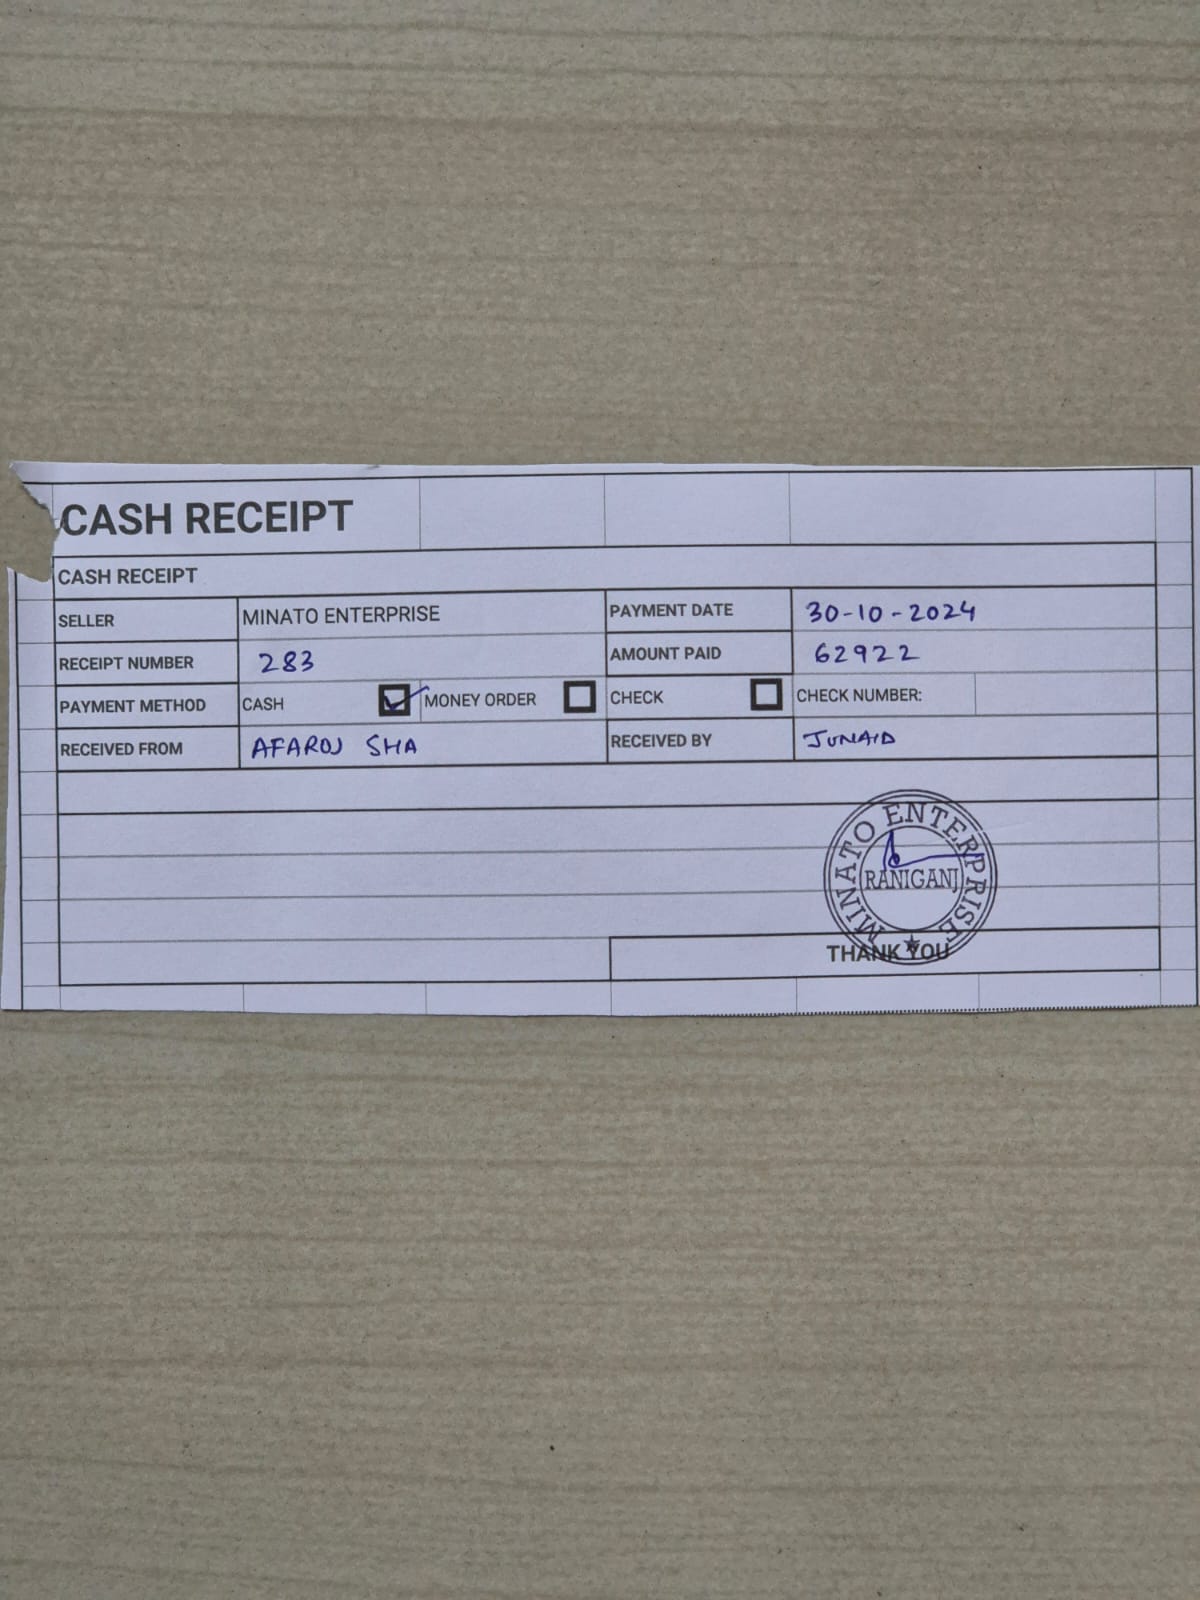 CASH RECEIPT
CASH RECEIPT
SELLER MINATO ENTERPRISE PAYMENT DATE 30-10-2024
RECEIPT NUMBER 283 AMOUNT PAID 62922
PAYMENT METHOD CASH MONEY ORDER CHECK CHECK NUMBER:
RECEIVED FROM AFAROJ SHA RECEIVED BY JUNAID
MINATO ENTERPRISE
RANIGANJ
THANK YOU